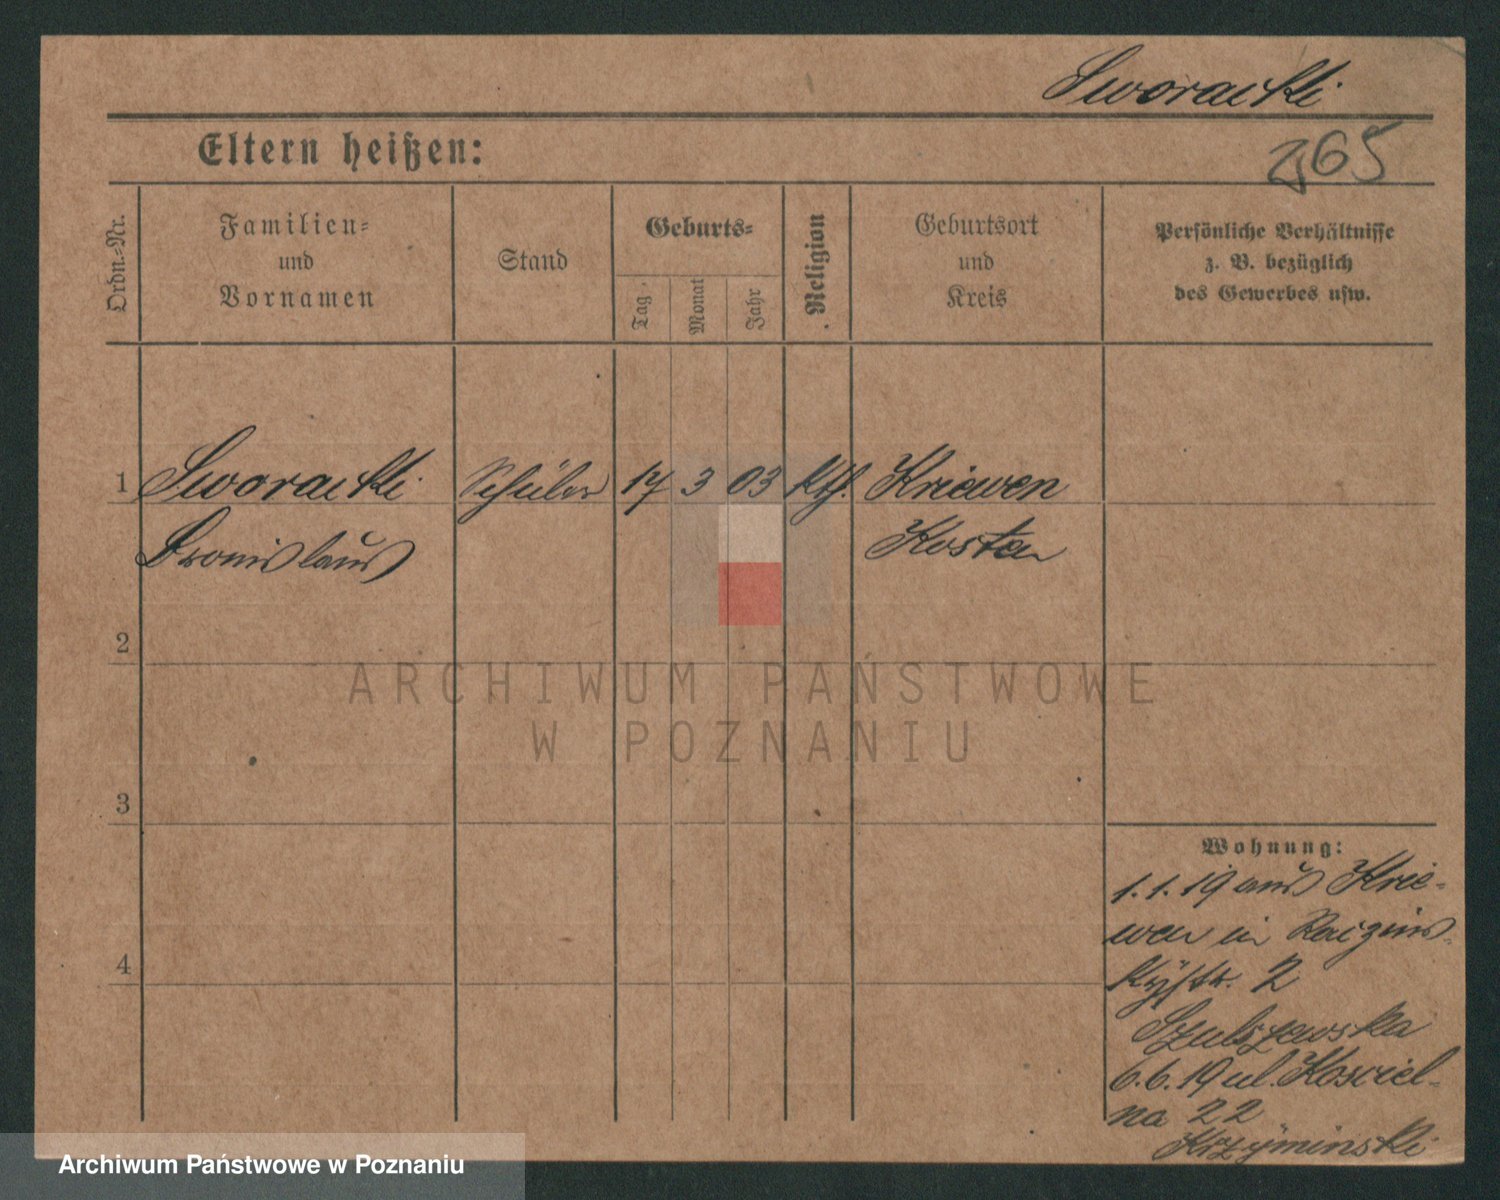 Sworacki
265
Eltern heißen:
Ordn.=Nr.
Familien=
und
Vornamen
Stand
Geburts=
Tag
Monat
Jahr
Religion
Geburtsort
und
Kreis
Persönliche Verhältnisse
z. B. bezüglich
des Gewerbes usw.
1 Sworacki Schüler 17 3 03 kth. Kriewen
Bronislaus Kosten
2
ARCHIWUM PAŃSTWOWE
W POZNANIU
3
Wohnung:
1.1.19 aus Krie-
wen in Raizins-
kystr. 2
Szulszewska
6.6.19 ul. Kosciel-
na 22
Krzyminski
4
Archiwum Państwowe w Poznaniu